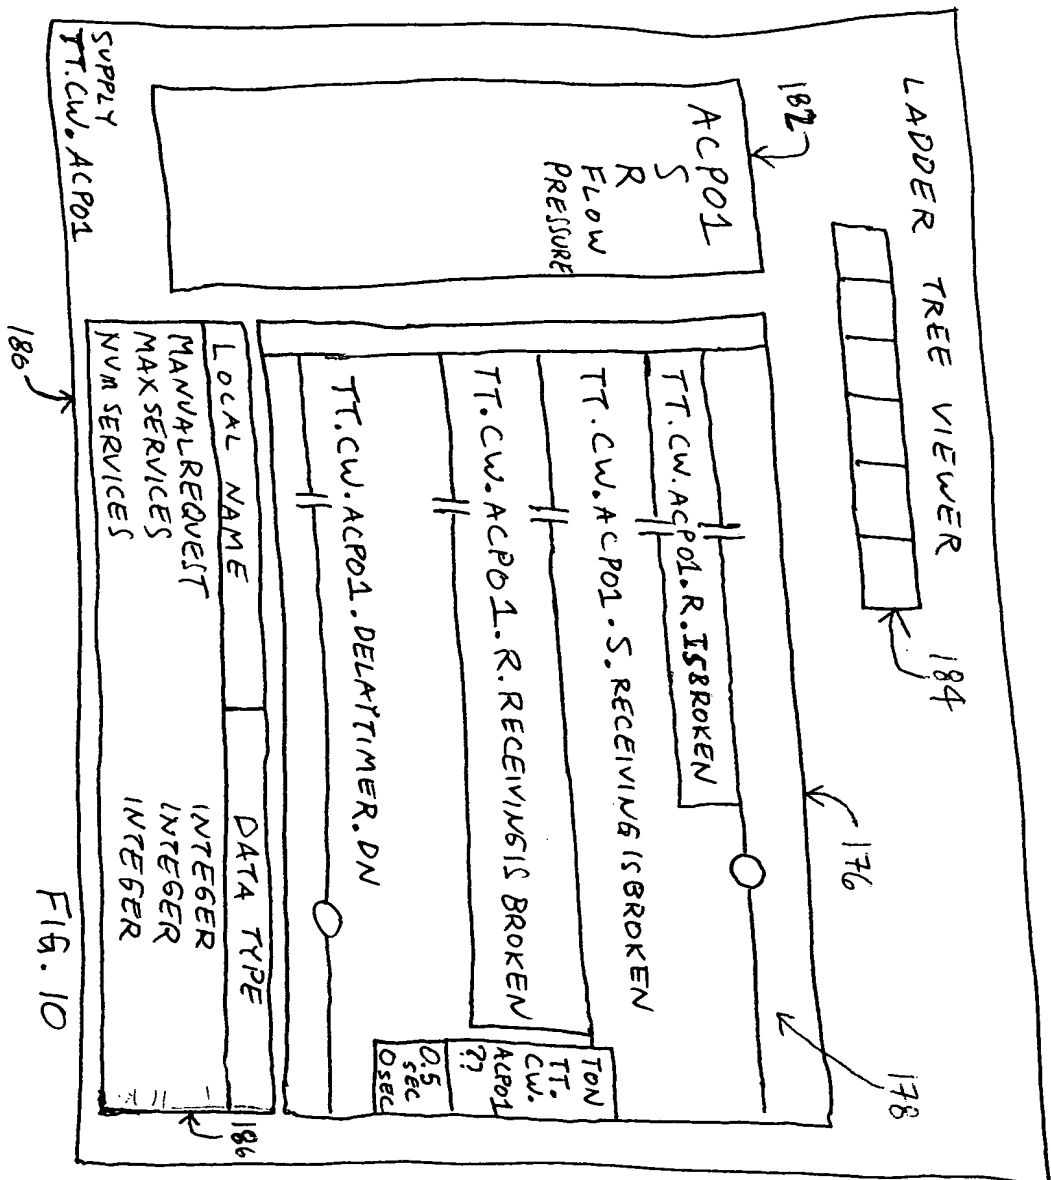 LADDER TREE VIEWER
184
182
176
178
ACP01
S
R
FLOW
PRESSURE
TT.CW.ACP01.R.ISBROKEN
TT.CW.ACP01.S.RECEIVINGISBROKEN
TT.CW.ACP01.R.RECEIVINGISBROKEN
TON
TT.
CW.
ACP01
??
0.5
SEC
0SEC
TT.CW.ACP01.DELAYTIMER.DN
LOCAL NAME
DATA TYPE
MANUALREQUEST
INTEGER
MAXSERVICES
INTEGER
NUMSERVICES
INTEGER
186
SUPPLY
TT.CW.ACP01
186
FIG. 10